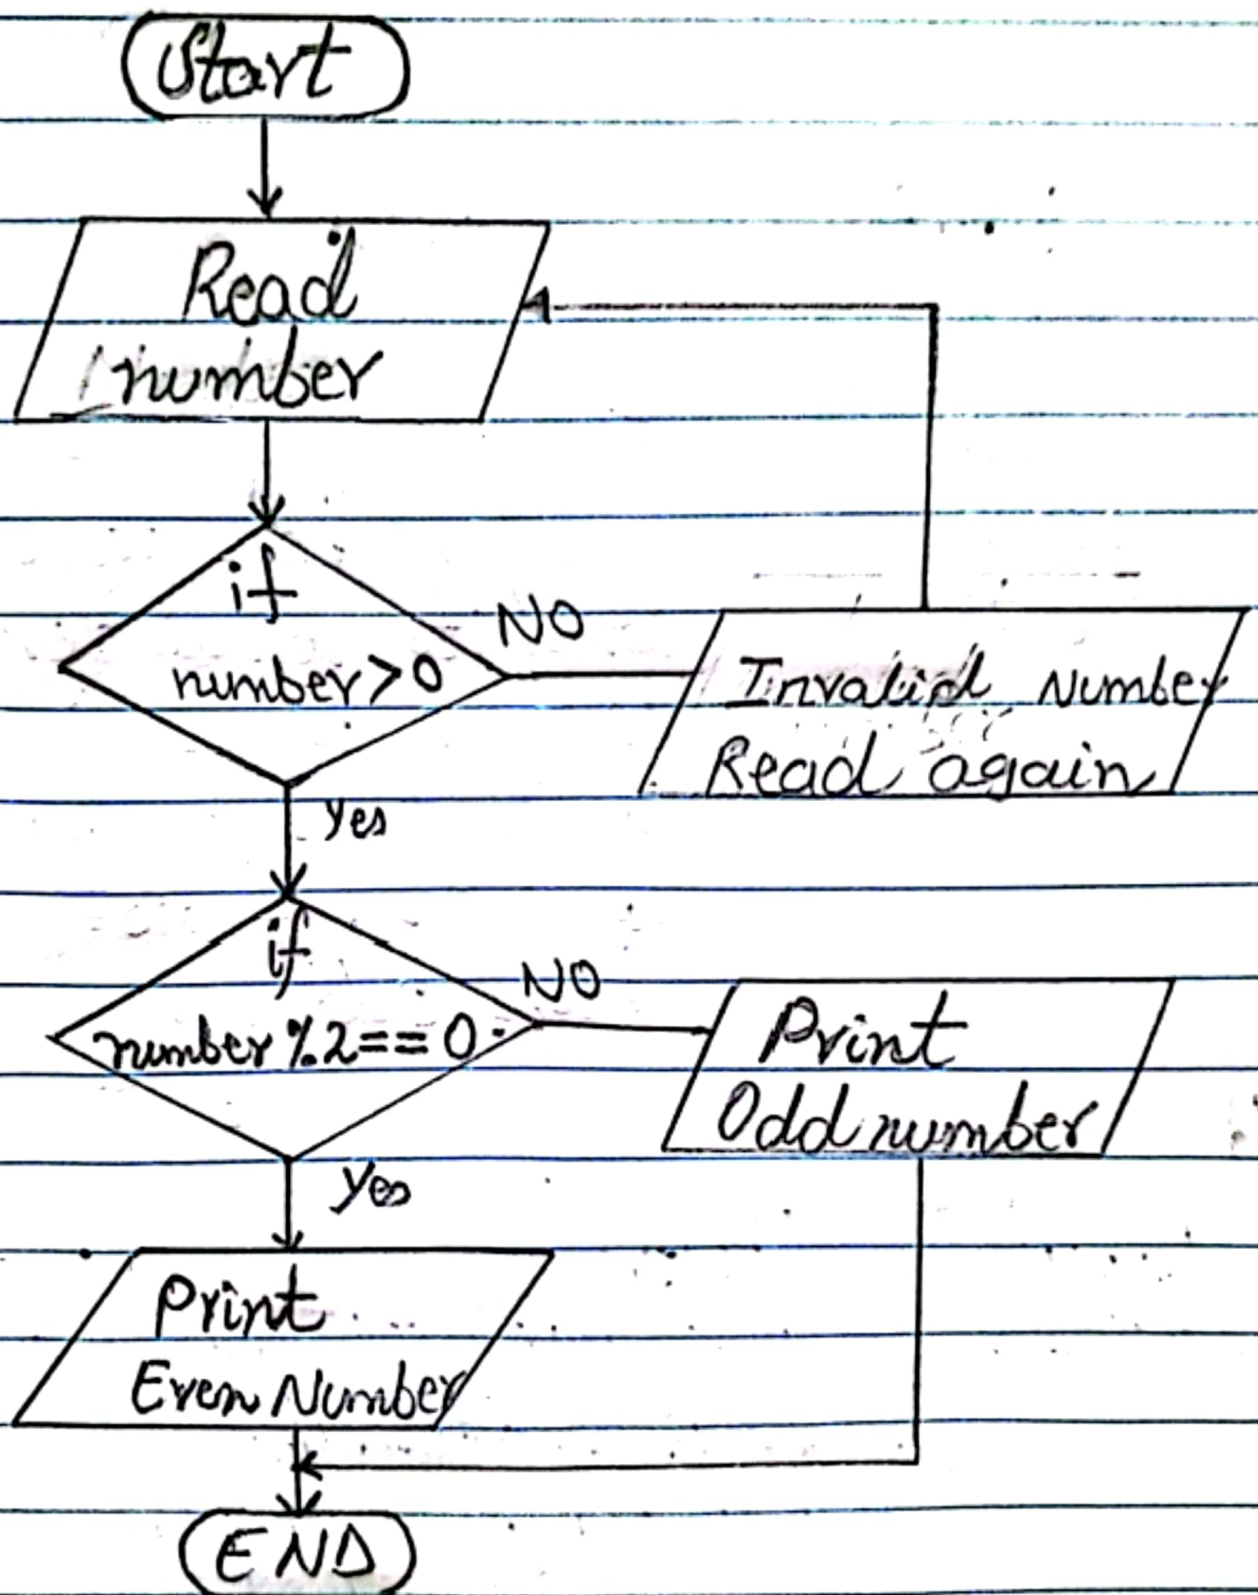 Start
Read
number
if
number > 0
NO
Invalid Number
Read again
Yes
if
number % 2 == 0
NO
Print
Odd number
Yes
Print
Even Number
END